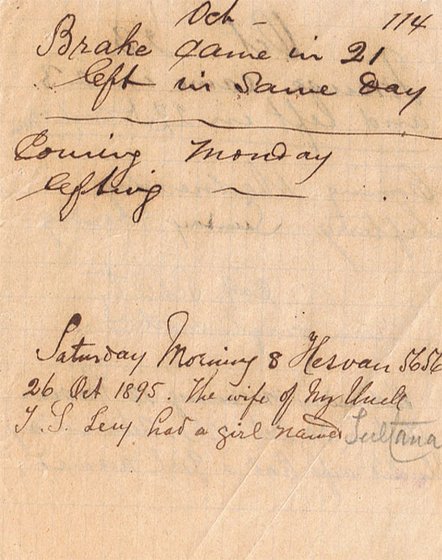 Oct — 114
Brake came in 21
left in Same Day
Coming Monday
lefting —
Saturday Morning 8 Hesvan 5656
26 Oct 1895. The wife of My Uncle
T. S. Levy had a girl named Sultana